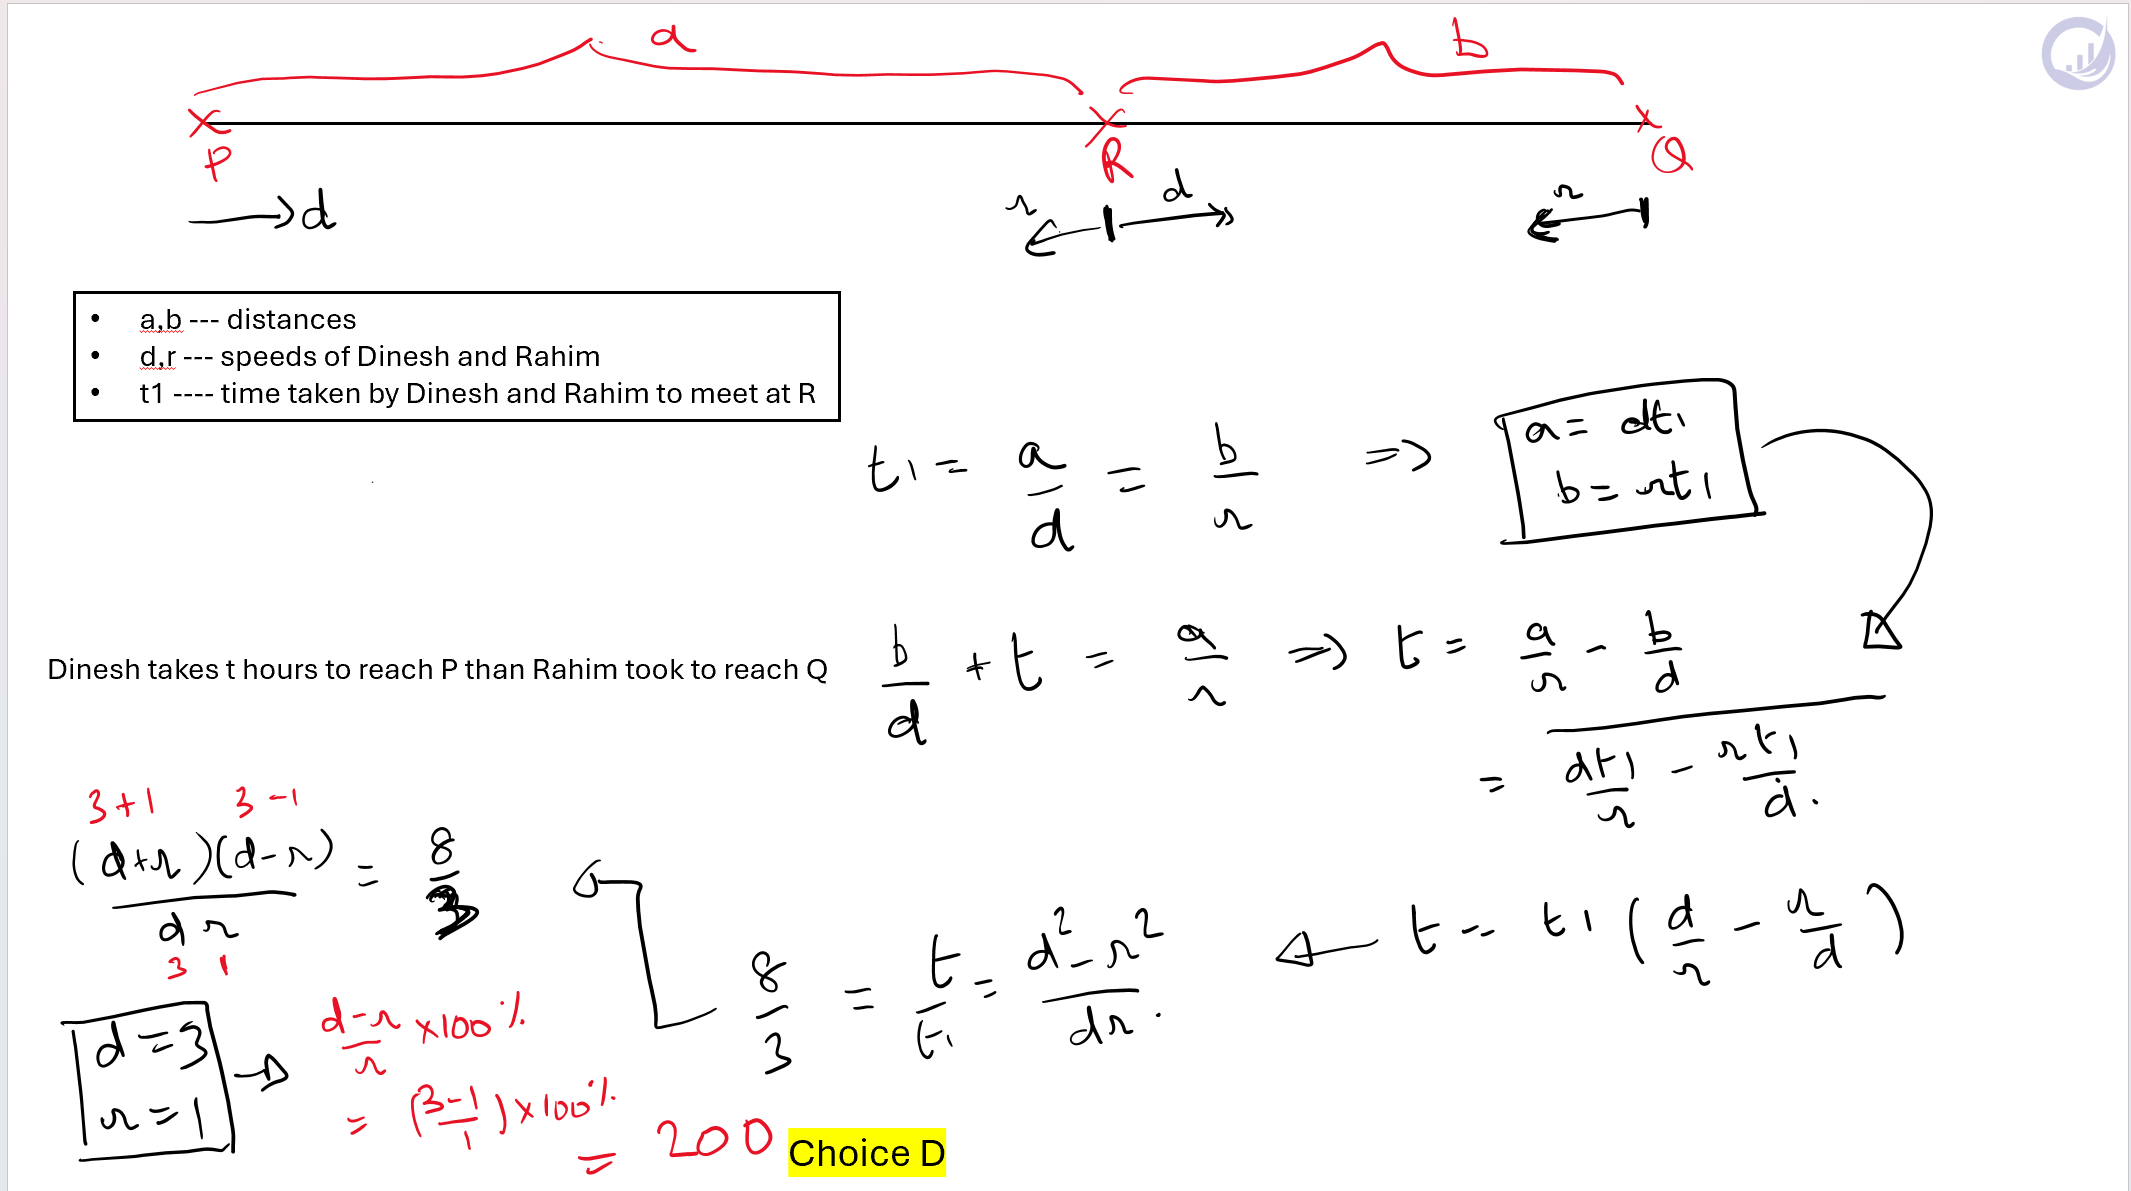 a b
P R Q
→ d r ← → d r ←
• a,b --- distances
• d,r --- speeds of Dinesh and Rahim
• t1 ---- time taken by Dinesh and Rahim to meet at R
t1 = a/d = b/r ⇒ a = dt1
b = rt1
Dinesh takes t hours to reach P than Rahim took to reach Q
b/d + t = a/r ⇒ t = a/r - b/d
= dt1/r - rt1/d.
3+1 3-1
(d+r)(d-r)/dr = 8/3
3 1
t = t1(d/r - r/d)
8/3 = t/t1 = d²-r²/dr.
d=3
r=1
d-r/r ×100%
= (3-1/1)×100%
= 200
Choice D